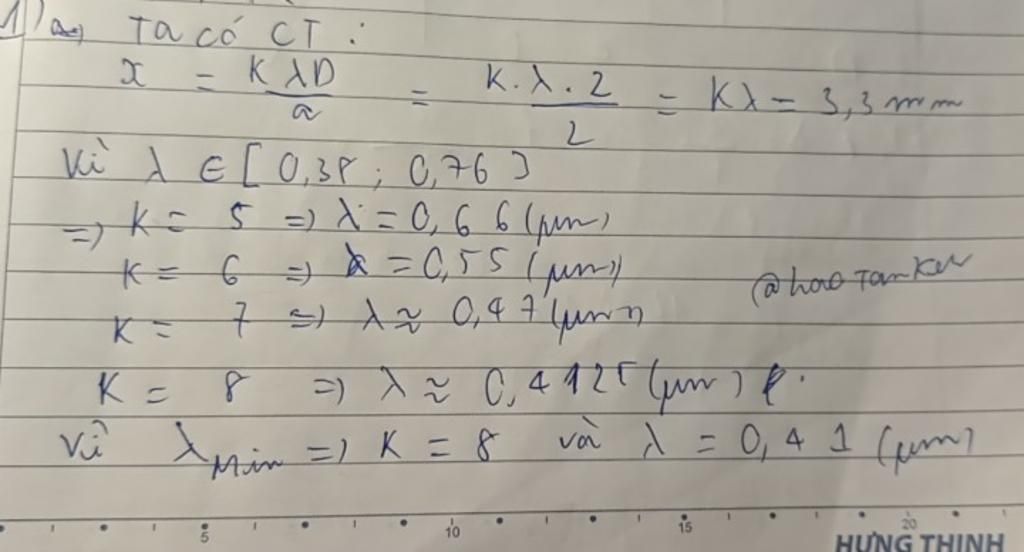 1) a) Ta có CT :
x = KλD/a = K.λ.2/2 = Kλ = 3,3mm
Vì λ ∈ [0,38 ; 0,76]
=> K = 5 => λ = 0,66 (μm)
K = 6 => λ = 0,55 (μm)
@haoTanker
K = 7 => λ ≈ 0,47 (μm)
K = 8 => λ ≈ 0,4125 (μm)
Vì λMin => K = 8 và λ = 0,41 (μm)
5 10 15 20
HƯNG THỊNH